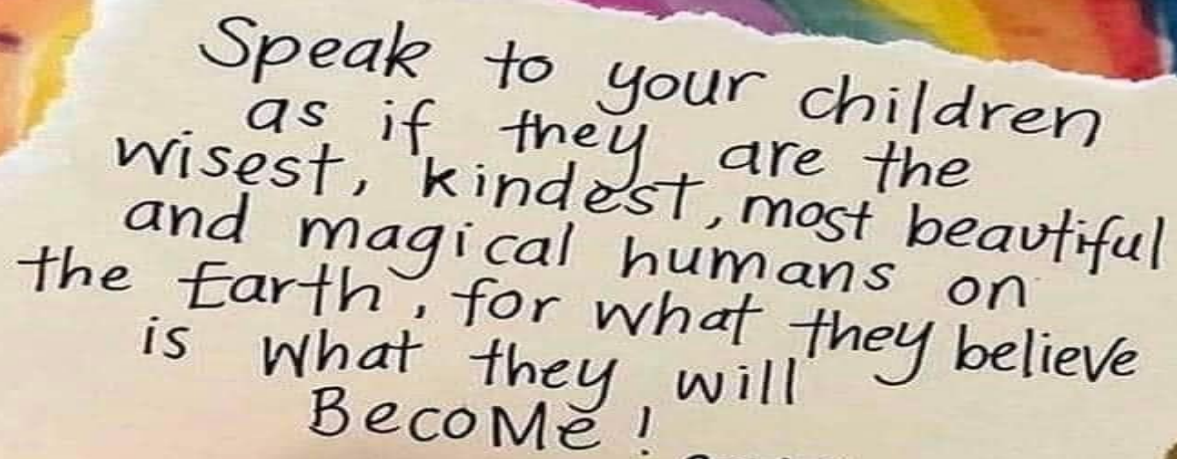 Speak to your children
as if they are the
wisest, kindest, most beautiful
and magical humans on
the Earth, for what they believe
is what they will
BecoMe!